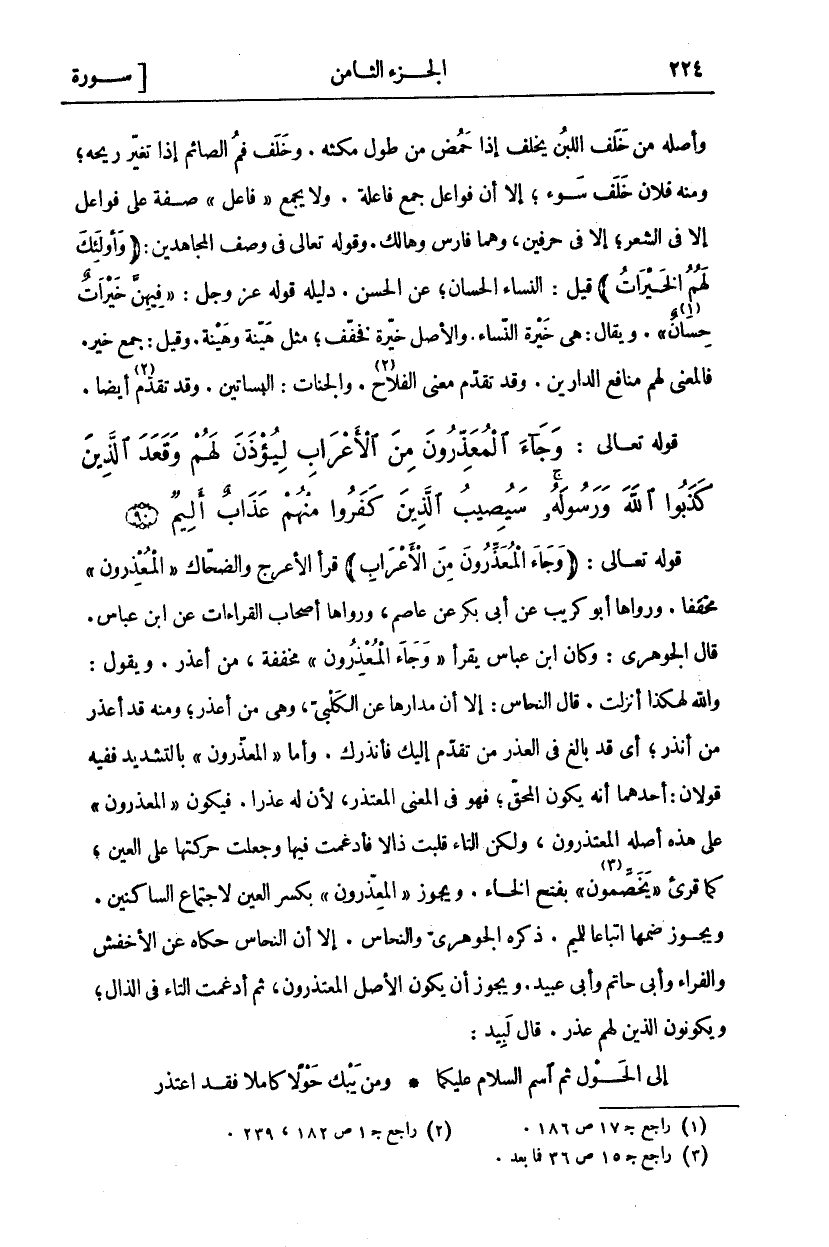 ٢٢٤ الجـزء الثـامن [ ســورة
وأصله من خَلَف اللبنُ يخلف إذا حَمُض من طول مكثه . وخَلَف فمُ الصائم إذا تغيّر ريحه ؛
ومنه فلان خَلَف سَـوء ؛ إلا أن فواعل جمع فاعلة . ولا يجمع « فاعل » صـفة على فواعل
إلا فى الشعر ؛ إلا فى حرفين ، وهما فارس وهالك . وقوله تعالى فى وصف المجاهدين : ﴿ وَأُولَئِكَ
لَهُمُ الْخَـيْرَاتُ ﴾ قيل : النساء الحسان ؛ عن الحسن . دليله قوله عز وجل : « فِيهِنَّ خَيْرَاتٌ
حِسَانٌ (١) » . ويقال : هى خَيْرة النّساء . والأصل خيّرة فخفّف ؛ مثل هَيّنة وهَيْنة . وقيل : جمع خير .
فالمعنى لهم منافع الدارين . وقد تقدّم معنى الفلاح (٢) . والجنات : البساتين . وقد تقدّم (٢) أيضا .
قوله تعـالى : وَجَآءَ ٱلْمُعَذِّرُونَ مِنَ ٱلْأَعْرَابِ لِيُؤْذَنَ لَهُمْ وَقَعَدَ ٱلَّذِينَ
كَذَبُوا ٱللَّهَ وَرَسُولَهُۥ ۚ سَيُصِيبُ ٱلَّذِينَ كَفَرُوا مِنْهُمْ عَذَابٌ أَلِيمٌ ﴿٩٠﴾
قوله تعـالى : ﴿ وَجَاءَ الْمُعَذِّرُونَ مِنَ الْأَعْرَابِ ﴾ قرأ الأعرج والضحّاك « الْمُعْذِرون »
مخففا . ورواها أبو كريب عن أبى بكر عن عاصم ، ورواها أصحاب القراءات عن ابن عباس .
قال الجوهرى : وكان ابن عباس يقرأ « وَجَاَء الْمُعْذِرُون » مخففة ، من أعذر . ويقول :
والله لهكذا أنزلت . قال النحاس : إلا أن مدارها عن الكَلْبىّ ، وهى من أعذر ؛ ومنه قد أعذر
من أنذر ؛ أى قد بالغ فى العذر من تقدّم إليك فأنذرك . وأما « المعذّرون » بالتشديد ففيه
قولان : أحدهما أنه يكون المحقّ ؛ فهو فى المعنى المعتذر ، لأن له عذرا . فيكون « المعذرون »
على هذه أصله المعتذرون ، ولكن التاء قلبت ذالا فأدغمت فيها وجعلت حركتها على العين ؛
كما قرئ « يَخَصِّمون (٣) » بفتح الخـاء . ويجوز « المعِذّرون » بكسر العين لاجتماع الساكنين .
ويجـوز ضمها اتباعا للميم . ذكره الجوهرىّ والنحاس . إلا أن النحاس حكاه عن الأخفش
والفراء وأبى حاتم وأبى عبيد . ويجوز أن يكون الأصل المعتذرون ، ثم أدغمت التاء فى الذال ؛
ويكونون الذين لهم عذر . قال لَبِيد :
إلى الحَــوْل ثم آسم السلام عليكما * ومن يَبْك حَوْلًا كاملا فقـد اعتذر
(١) راجع جـ ١٧ ص ١٨٦ . (٢) راجع جـ ١ ص ١٨٢ ، ٢٣٩ .
(٣) راجع جـ ١٥ ص ٣٦ فا بعد .